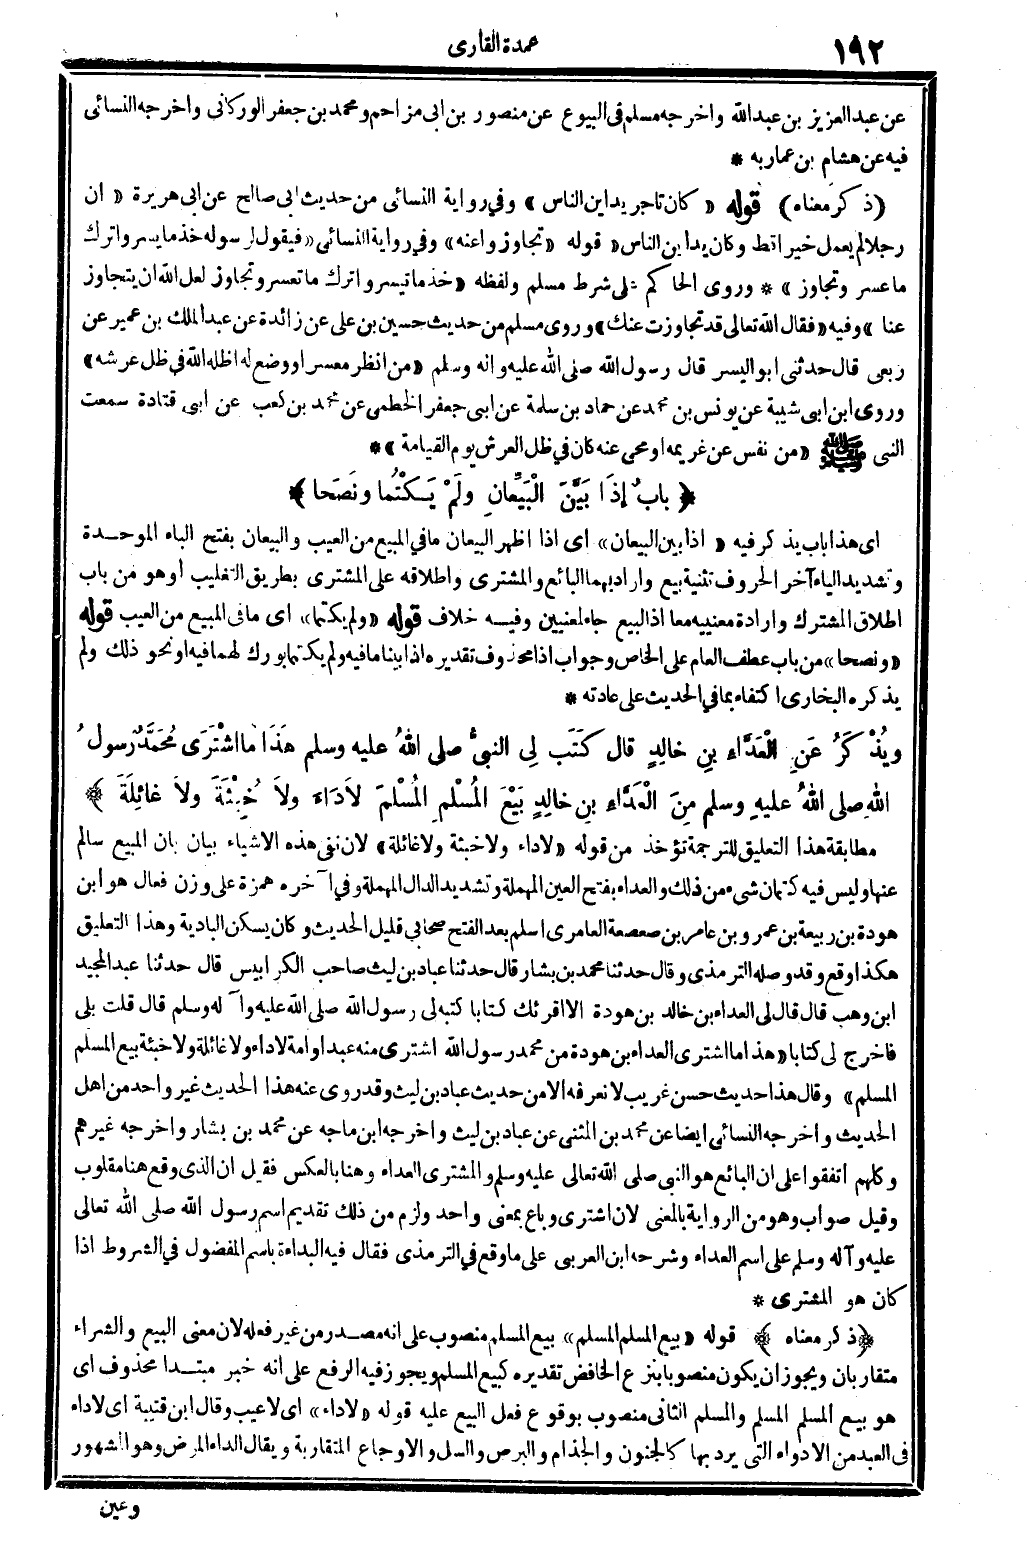 ١٩٢
عمدة القارى
عن عبد العزيز بن عبد الله واخرجه مسلم فى البيوع عن منصور بن ابى مزاحم ومحمد بن جعفر الوركانى واخرجه النسائى
فيه عن هشام بن عمار به *
(ذكر معناه) قوله «كان تاجر يداين الناس» وفي رواية النسائى من حديث ابى صالح عن ابى هريرة «ان
رجلا لم يعمل خيرا قط وكان يداين الناس» قوله «تجاوزوا عنه» وفي رواية النسائى «فيقول لرسوله خذ ما يسر واترك
ما عسر وتجاوز» * وروى الحاكم على شرط مسلم ولفظه «خذ ما تيسر واترك ما تعسر وتجاوز لعل الله ان يتجاوز
عنا» وفيه «فقال الله تعالى قد تجاوزت عنك» وروى مسلم من حديث حسين بن على عن زائدة عن عبد الملك بن عمير عن
ربعى قال حدثنى ابو اليسر قال رسول الله صلى الله عليه واله وسلم «من انظر معسرا او وضع له اظله الله في ظل عرشه»
وروى ابن ابى شيبة عن يونس بن محمد عن حماد بن سلمة عن ابى جعفر الخطمى عن محمد بن كعب عن ابى قتادة سمعت
النبى ﷺ «من نفس عن غريمه او محى عنه كان في ظل العرش يوم القيامة» *
﴿ بابٌ إذَا بَيَّنَ الْبَيِّعانِ ولَمْ يَكْتُما ونَصَحا ﴾
اى هذا باب يذكر فيه «اذا بين البيعان» اى اذا اظهر البيعان ما في المبيع من العيب والبيعان بفتح الباء الموحدة
وتشديد الياء آخر الحروف تثنية بيع واراد بهما البائع والمشترى واطلاقه على المشترى بطريق التغليب أو هو من باب
اطلاق المشترك وارادة معنييه معا اذ البيع جاء لمعنيين وفيه خلاف قوله «ولم يكتما» اى ما فى المبيع من العيب قوله
«ونصحا» من باب عطف العام على الخاص وجواب اذا محذوف تقديره اذا بينا ما فيه ولم يكتما بورك لهما فيه او نحو ذلك ولم
يذكره البخارى اكتفاء بما في الحديث على عادته *
ويُذْكَرُ عَنِ الْعَدَّاءِ بنِ خالِدٍ قال كَتَبَ لِى النبىُّ صلى اللهُ عليه وسلم هذَا ما اشْتَرَى مُحَمَّدٌ رسولُ
اللهِ صلى اللهُ عليهِ وسلم مِنَ الْعَدَّاءِ بنِ خالِدٍ بَيْعَ المُسْلِمِ المُسْلِمَ لاَ دَاءَ ولاَ خِبْثَةَ ولاَ غائِلَةَ ﴾
مطابقة هذا التعليق للترجمة تؤخذ من قوله «لا داء ولا خبثة ولا غائلة» لان نفى هذه الاشياء بيان بان المبيع سالم
عنها وليس فيه كتمان شىء من ذلك والعداء بفتح العين المهملة وتشديد الدال المهملة وفي آخره همزة على وزن فعال هو ابن
هودة بن ربيعة بن عمرو بن عامر بن صعصعة العامرى اسلم بعد الفتح صحابي قليل الحديث وكان يسكن البادية وهذا التعليق
هكذا وقع وقد وصله الترمذى وقال حدثنا محمد بن بشار قال حدثنا عباد بن ليث صاحب الكرابيس قال حدثنا عبد المجيد
ابن وهب قال قال لى العداء بن خالد بن هودة الا اقرئك كتابا كتبه لى رسول الله صلى الله عليه وآله وسلم قال قلت بلى
فاخرج لى كتابا «هذا ما اشترى العداء بن هودة من محمد رسول الله اشترى منه عبدا او امة لا داء ولا غائلة ولا خبثة بيع المسلم
المسلم» وقال هذا حديث حسن غريب لا نعرفه الا من حديث عباد بن ليث وقد روى عنه هذا الحديث غير واحد من اهل
الحديث واخرجه النسائى ايضا عن محمد بن المثنى عن عباد بن ليث واخرجه ابن ماجه عن محمد بن بشار واخرجه غيرهم
وكلهم اتفقوا على ان البائع هو النبى صلى الله تعالى عليه وسلم والمشترى العداء وهنا بالعكس فقيل ان الذى وقع هنا مقلوب
وقيل صواب وهو من الرواية بالمعنى لان اشترى وباع بمعنى واحد ولزم من ذلك تقديم اسم رسول الله صلى الله تعالى
عليه وآله وسلم على اسم العداء وشرحه ابن العربى على ما وقع في الترمذى فقال فيه البداءة باسم المفضول في الشروط اذا
كان هو المشترى *
﴿ذكر معناه﴾ قوله «بيع المسلم المسلم» بيع المسلم منصوب على انه مصدر من غير فعله لان معنى البيع والشراء
متقاربان ويجوز ان يكون منصوبا بنزع الخافض تقديره كبيع المسلم ويجوز فيه الرفع على انه خبر مبتدا محذوف اى
هو بيع المسلم المسلم والمسلم الثانى منصوب بوقوع فعل البيع عليه قوله «لا داء» اى لا عيب وقال ابن قتيبة اى لا داء
فى العبد من الادواء التى يرد بها كالجنون والجذام والبرص والسل والاوجاع المتقاربة ويقال الداء المرض وهو المشهور
وعين